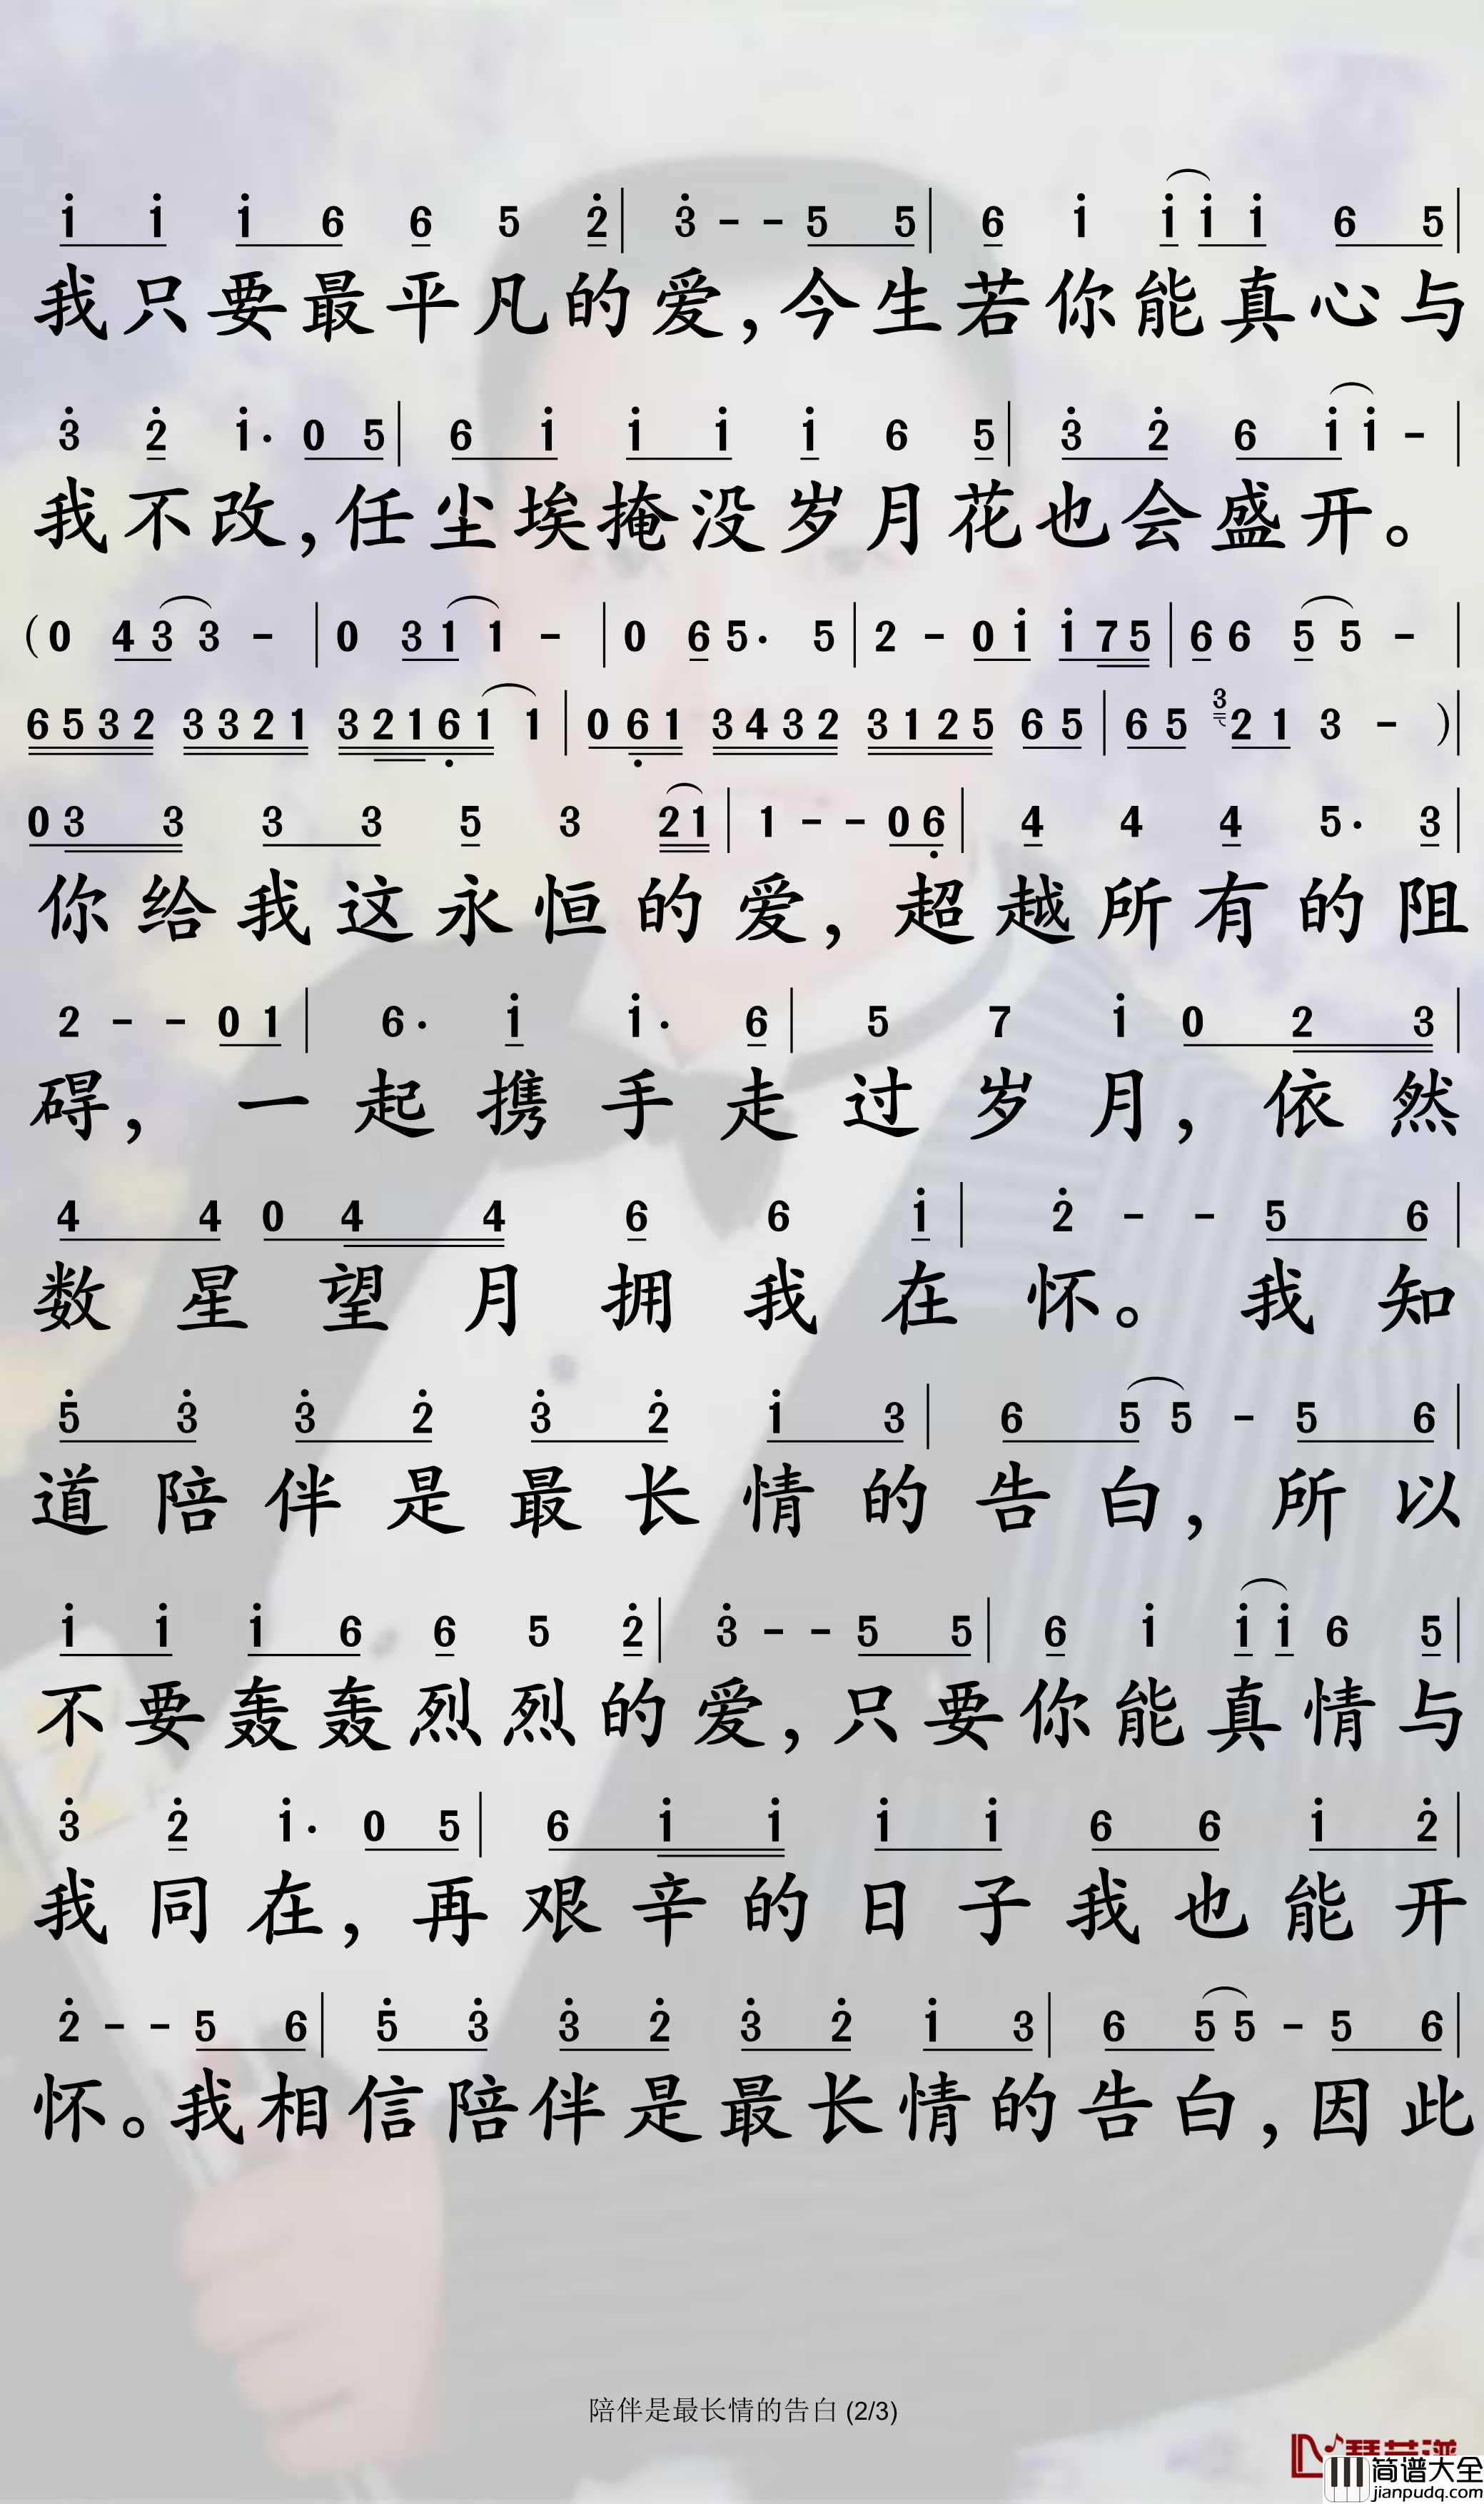 i i i 6 6 5 2̇ | 3̇ - - 5 5 | 6 i i i i 6 5 |
我只要最平凡的爱,今生若你能真心与
3̇ 2̇ i· 0 5 | 6 i i i i 6 5 | 3̇ 2̇ 6 i i - |
我不改,任尘埃掩没岁月花也会盛开。
(0 4 3 3 - | 0 3 1 1 - | 0 6 5· 5 | 2 - 0 i i 7 5 | 6 6 5 5 - |
6 5 3 2 3 3 2 1 3 2 1 6̣ 1 1 | 0 6̣ 1 3 4 3 2 3 1 2 5 6 5 | 6 5 3 2 1 3 - )|
0 3 3 3 3 5 3 2 1 | 1 - - 0 6̣ | 4 4 4 5· 3 |
你给我这永恒的爱,超越所有的阻
2 - - 0 1 | 6· i i· 6 | 5 7 i 0 2 3 |
碍,一起携手走过岁月,依然
4 4 0 4 4 6 6 i | 2̇ - - 5 6 |
数星望月拥我在怀。我知
5̇ 3̇ 3̇ 2̇ 3̇ 2̇ i 3 | 6 5 5 - 5 6 |
道陪伴是最长情的告白,所以
i i i 6 6 5 2̇ | 3̇ - - 5 5 | 6 i i i 6 5 |
不要轰轰烈烈的爱,只要你能真情与
3̇ 2̇ i· 0 5 | 6 i i i i 6 6 i 2̇ |
我同在,再艰辛的日子我也能开
2̇ - - 5 6 | 5̇ 3̇ 3̇ 2̇ 3̇ 2̇ i 3 | 6 5 5 - 5 6 |
怀。我相信陪伴是最长情的告白,因此
陪伴是最长情的告白 (2/3)
简谱大全
jianpudq.com